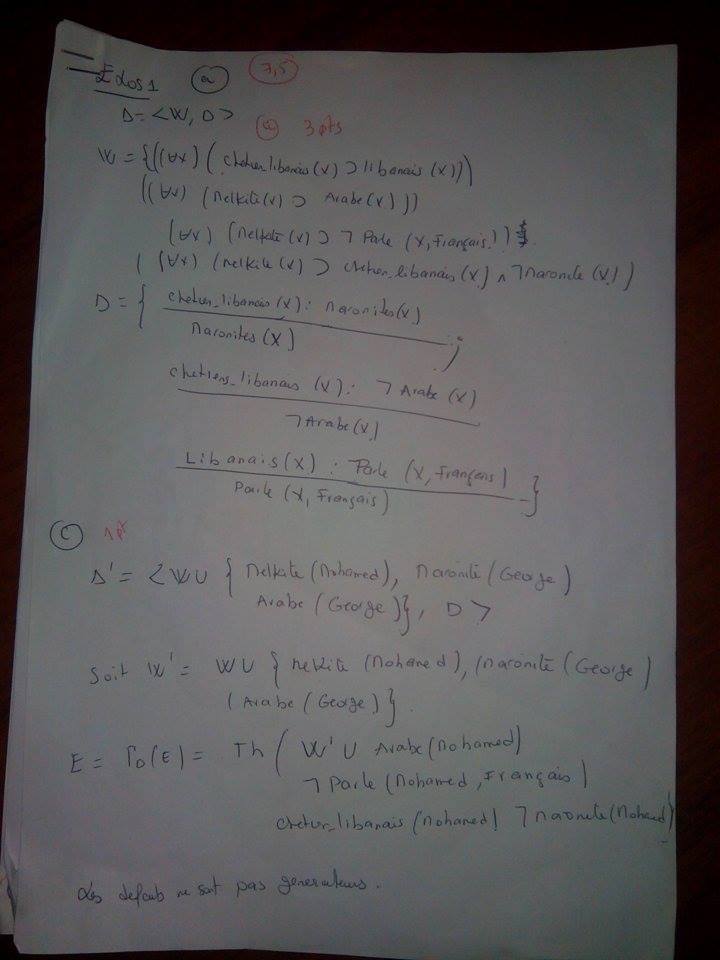 Exos 1 (a) 7,5
Δ = <W, D>
(a) 3 pts
W = {((∀x) (chetien_libanais(x) ⊃ libanais(x)))
((∀x) (Melkite(x) ⊃ Arabe(x)))
(∀x) (Melkite(x) ⊃ ¬ Parle (x, Français))
((∀x) (Melkite(x) ⊃ chetien_libanais(x) ∧ ¬ Maronite(x))
D = { chetien_libanais(x) : Maronites(x)
Maronites(x) ;
chetiens_libanais(x) : ¬ Arabe(x)
¬ Arabe(x)
Libanais(x) : Parle (x, Français)
Parle (x, Français) }
(c) 1 pt
Δ' = <W ∪ { Melkite(Mohamed), Maronite(George)
Arabe(George)}, D >
Soit W' = W ∪ { Melkite (Mohamed), Maronite (George)
Arabe (George) }.
E = Γ_D(E) = Th ( W' ∪ Arabe(Mohamed)
¬ Parle (Mohamed, Français)
chetien_libanais (Mohamed) ¬ Maronite(Mohamed)
Les defauts ne sont pas generateurs.